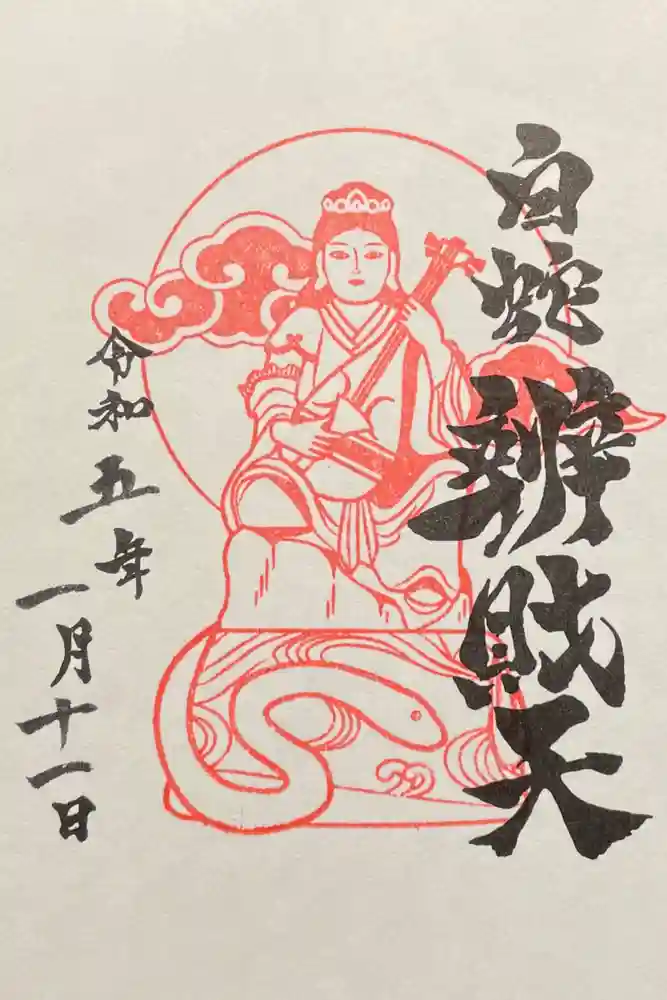 白蛇辨財天
令和五年
一月十一日